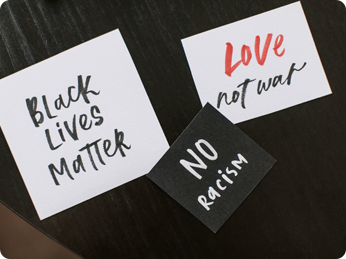 BLacK
LiVes
MaTTeR
LOVe
not war
NO
RaciSM